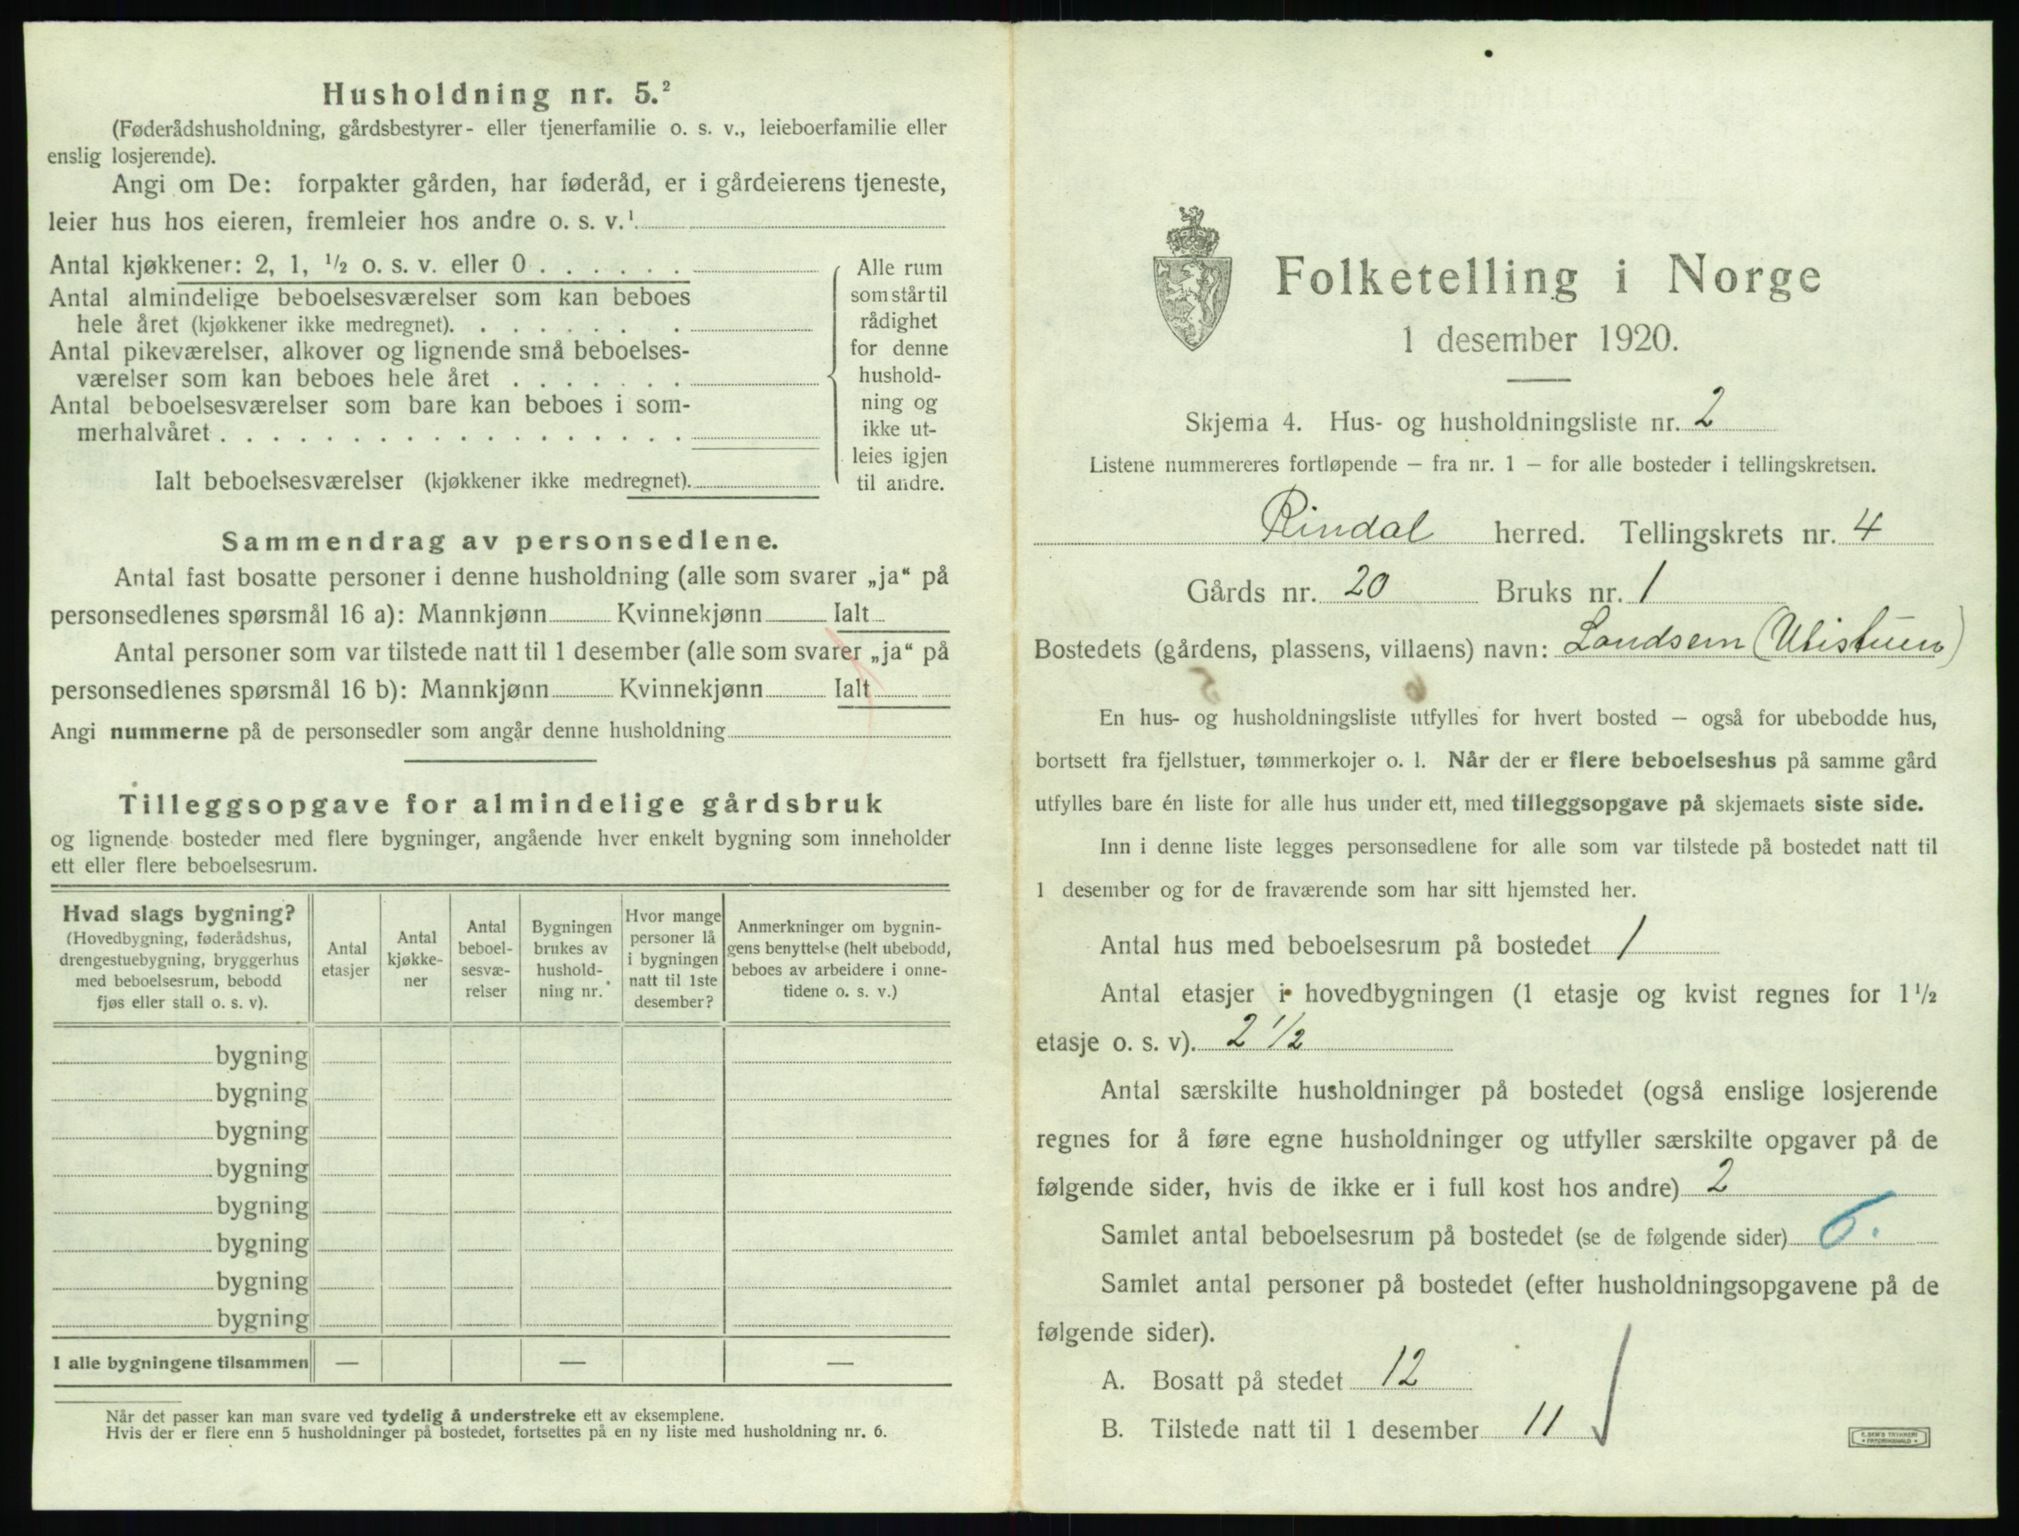 Husholdning nr. 5.²
(Føderådshusholdning, gårdsbestyrer- eller tjenerfamilie o. s. v., leieboerfamilie eller
enslig losjerende).
Angi om De: forpakter gården, har føderåd, er i gårdeierens tjeneste,
leier hus hos eieren, fremleier hos andre o. s. v.¹
Antal kjøkkener: 2, 1, ½ o. s. v. eller 0 . . . . . .
Antal almindelige beboelsesværelser som kan beboes
hele året (kjøkkener ikke medregnet). . . . . . . .
Antal pikeværelser, alkover og lignende små beboelses-
værelser som kan beboes hele året . . . . . . .
Antal beboelsesværelser som bare kan beboes i som-
merhalvåret . . . . . . . . . . . . . . . . . .
Ialt beboelsesværelser (kjøkkener ikke medregnet).
Alle rum
som står til
rådighet
for denne
hushold-
ning og
ikke ut-
leies igjen
til andre.
Sammendrag av personsedlene.
Antal fast bosatte personer i denne husholdning (alle som svarer „ja“ på
personsedlenes spørsmål 16 a): Mannkjønn Kvinnekjønn Ialt
Antal personer som var tilstede natt til 1 desember (alle som svarer „ja“ på
personsedlenes spørsmål 16 b): Mannkjønn Kvinnekjønn Ialt
Angi nummerne på de personsedler som angår denne husholdning
Tilleggsopgave for almindelige gårdsbruk
og lignende bosteder med flere bygninger, angående hver enkelt bygning som inneholder
ett eller flere beboelsesrum.
Hvad slags bygning?
(Hovedbygning, føderådshus,
drengestuebygning, bryggerhus
med beboelsesrum, bebodd
fjøs eller stall o. s. v).
Antal
etasjer
Antal
kjøkke-
ner
Antal
beboel-
sesvæ-
relser
Bygningen
brukes av
hushold-
ning nr.
Hvor mange
personer lå
i bygningen
natt til 1ste
desember?
Anmerkninger om bygnin-
gens benyttelse (helt ubebodd,
beboes av arbeidere i onne-
tidene o. s. v.)
bygning
bygning
bygning
bygning
bygning
bygning
bygning
bygning
I alle bygningene tilsammen — — —
Når det passer kan man svare ved tydelig å understreke ett av eksemplene.
Hvis der er flere enn 5 husholdninger på bostedet, fortsettes på en ny liste med husholdning nr. 6.
Folketelling i Norge
1 desember 1920.
Skjema 4. Hus- og husholdningsliste nr. 2
Listene nummereres fortløpende – fra nr. 1 – for alle bosteder i tellingskretsen.
Rindal herred. Tellingskrets nr. 4
Gårds nr. 20 Bruks nr. 1
Bostedets (gårdens, plassens, villaens) navn: Landsem (Utistuen)
En hus- og husholdningsliste utfylles for hvert bosted – også for ubebodde hus,
bortsett fra fjellstuer, tømmerkojer o. l. Når der er flere beboelseshus på samme gård
utfylles bare én liste for alle hus under ett, med tilleggsopgave på skjemaets siste side.
Inn i denne liste legges personsedlene for alle som var tilstede på bostedet natt til
1 desember og for de fraværende som har sitt hjemsted her.
Antal hus med beboelsesrum på bostedet 1
Antal etasjer i hovedbygningen (1 etasje og kvist regnes for 1½
etasje o. s. v). 2 ½
Antal særskilte husholdninger på bostedet (også enslige losjerende
regnes for å føre egne husholdninger og utfyller særskilte opgaver på de
følgende sider, hvis de ikke er i full kost hos andre) 2
Samlet antal beboelsesrum på bostedet (se de følgende sider) 6.
Samlet antal personer på bostedet (efter husholdningsopgavene på de
følgende sider).
A. Bosatt på stedet 12
B. Tilstede natt til 1 desember 11